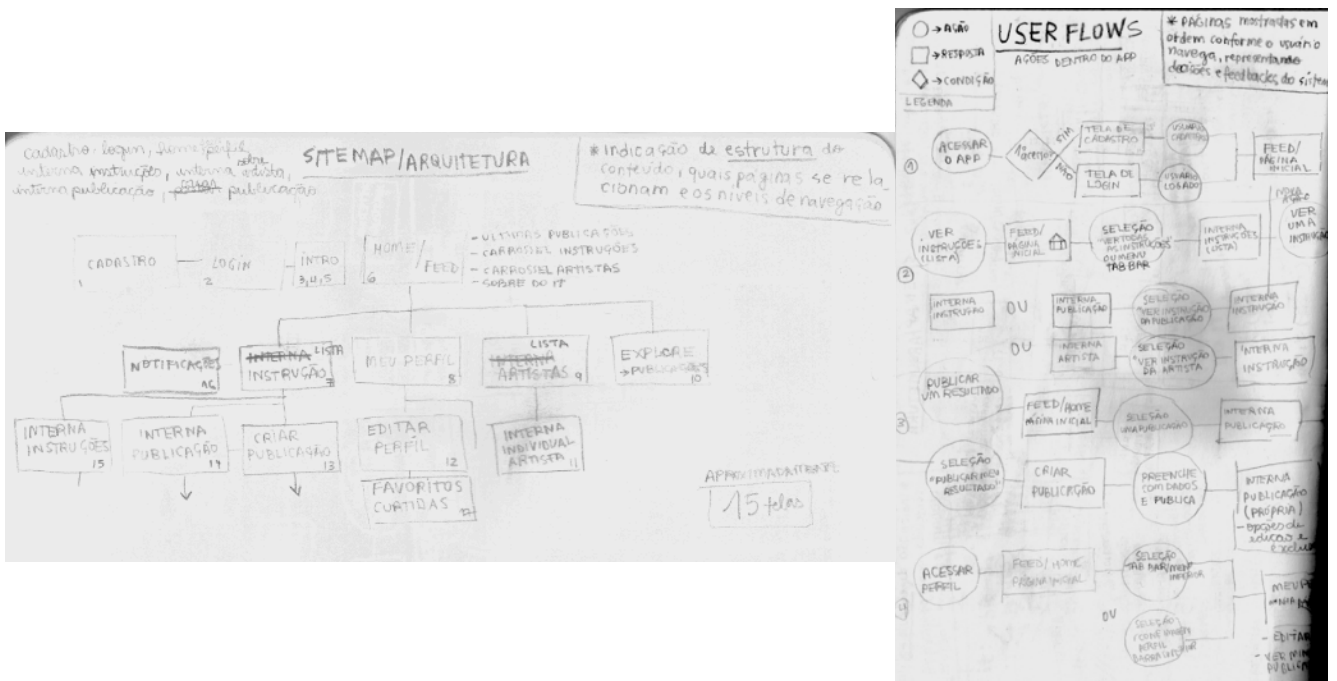 cadastro, login, home, perfil,
interna instruções, interna
interna publicação, publicação
SITEMAP/ARQUITETURA
* indicação de estrutura do
conteúdo, quais páginas se rela
cionam e os níveis de navegação
CADASTRO
1
LOGIN
2
INTRO
3,4,5
HOME/
FEED
6
- ULTIMAS PUBLICAÇÕES
- CARROSSEL INSTRUÇÕES
- CARROSSEL ARTISTAS
- SOBRE DO IT
NOTIFICAÇÕES
16
INTERNA LISTA
INSTRUÇÃO
7
MEU PERFIL
8
LISTA
INTERNA
ARTISTAS
9
EXPLORE
→ PUBLICAÇÕES
10
INTERNA
INSTRUÇÕES
15
INTERNA
PUBLICAÇÃO
14
CRIAR
PUBLICAÇÃO
13
EDITAR
PERFIL
12
INTERNA
INDIVIDUAL
ARTISTA
11
FAVORITOS
CURTIDAS
APROXIMADAMENTE
15 telas
→ AÇÃO
→ RESPOSTA
→ CONDIÇÃO
LEGENDA
USER FLOWS
AÇÕES DENTRO DO APP
* PÁGINAS mostradas em
ordem conforme o usuário
navega, representando
decisões e feedbacks do sistem
1
ACESSAR
O APP
1º acesso?
SIM
NÃO
TELA DE
CADASTRO
USUÁRIO
CADASTRADO
TELA DE
LOGIN
USUÁRIO
LOGADO
FEED/
PÁGINA
INICIAL
2
VER
INSTRUÇÕES
(LISTA)
FEED/
PÁGINA
INICIAL
SELEÇÃO
"VER TODAS
AS INSTRUÇÕES"
OU MENU
TAB BAR
INTERNA
INSTRUÇÕES
(LISTA)
VER
UMA
INSTRUÇÃO
INTERNA
INSTRUÇÃO
OU
INTERNA
PUBLICAÇÃO
SELEÇÃO
"VER INSTRUÇÃO
DA PUBLICAÇÃO"
INTERNA
INSTRUÇÃO
OU
INTERNA
ARTISTA
SELEÇÃO
"VER INSTRUÇÃO
DA ARTISTA
INTERNA
INSTRUÇÃO
3
PUBLICAR
UM RESULTADO
FEED/HOME
PÁGINA INICIAL
SELEÇÃO
UMA PUBLICAÇÃO
INTERNA
PUBLICAÇÃO
SELEÇÃO
"PUBLICAR MEU
RESULTADO"
CRIAR
PUBLICAÇÃO
PREENCHE
COM DADOS
E PUBLICA
INTERNA
PUBLICAÇÃO
(PRÓPRIA)
- opções de
edição e
exclu
4
ACESSAR
PERFIL
FEED/HOME
PÁGINA INICIAL
SELEÇÃO
TAB BAR/MENU
INFERIOR
OU
SELEÇÃO
PERFIL
BARRA
MEU P
- EDITAR
- VER MIN
PUBLICA